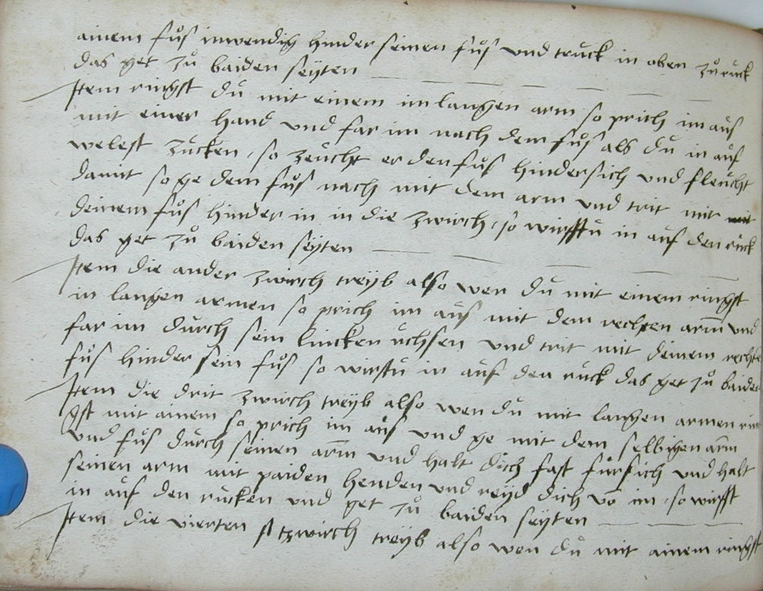 ainem fůs inwendig hinder seinen fůs und truck in oben zůruck
das get zů baiden seyten
Item ringst du mit einem im langen arm so prich im aus
mit einer hand und far im nach dem fůs als du in auf
welest zucken, so zeucht er den fůs hindersich und fleucht
damit so ge dem fůs nach mit dem arm und trit mit
deinem fůs hinder in in die zwirch, so wirffstu in auf den ruck
das get zů baiden seyten
Item die ander zwirch treyb also wen du mit einem ringst
in langen armen so prich im aus mit dem rechten arm und
far im durch sein lincken uchsen und trit mit deinem rechten
fůs hinder sein fůs so wirfstu in auf den ruck das get zů baiden
Item die drit zwirch treyb also wen du mit langen armen rin
gst mit ainem so prich im aus und ge mit dem selbigen arm
und fůs durch seinen arm und halt dich fast fürsich und halt
seinen arm mit paiden henden und reyb dich vo im, so wirfst
in auf den rucken und get zů baiden seyten
Item die vierten zwirch treyb also wen du mit ainem ringst